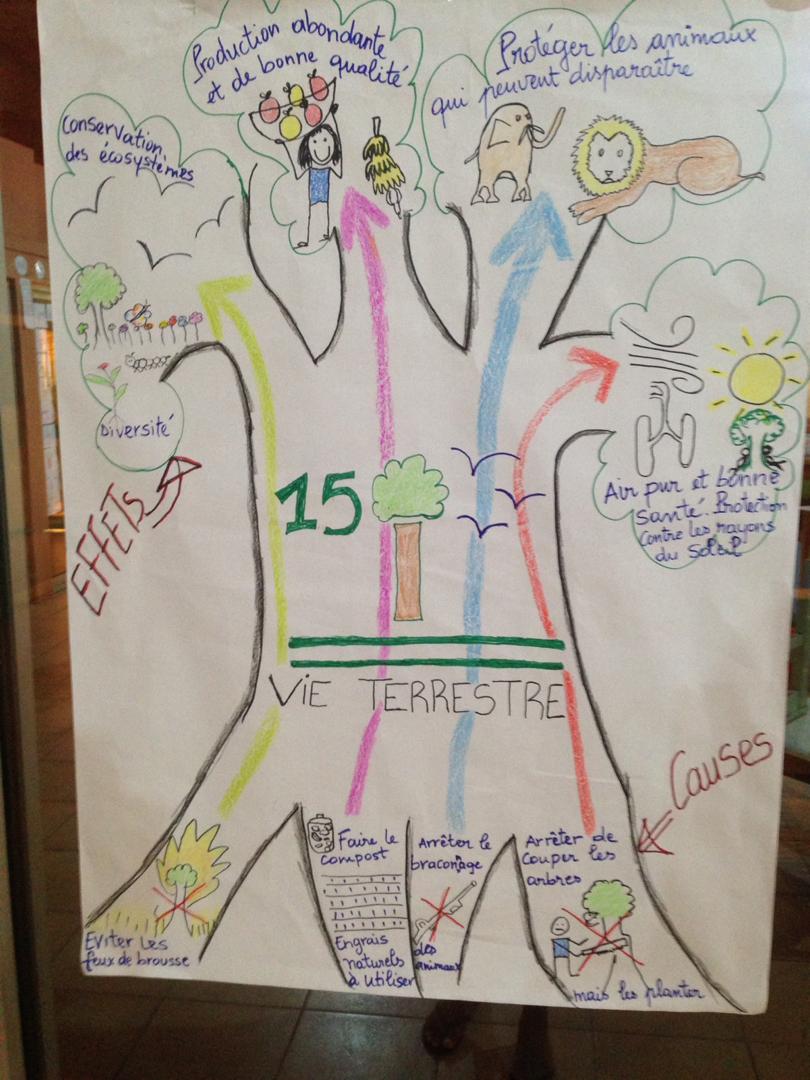 Production abondante
et de bonne qualité
Protéger les animaux
qui peuvent disparaître
Conservation
des écosystèmes
Diversité
EFFETS
15
Air pur et bonne
Santé. Protection
Contre les rayons
du Soleil
ViE TERRESTRE
Causes
Eviter les
feux de brousse
Faire le
compost
Engrais
naturels
à utiliser
Arrêter le
braconage
des
animaux
Arrêter de
Couper les
arbres
mais les planter